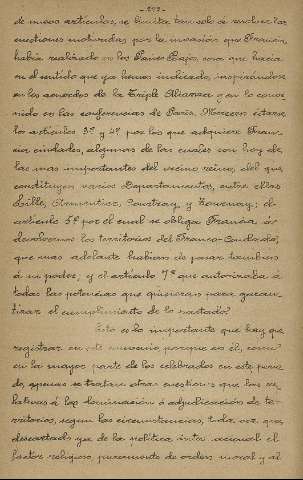 - 292 -
de nueve artículos, se limita tan solo á resolver las
cuestiones motivadas por la invasión que Francia
había realizado en los Países Bajos, cosa que hacía
en el sentido que ya hemos indicado, inspirándose
en los acuerdos de la Triple Alianza y en lo conve-
nido en las conferencias de París. Merecen citarse
los artículos 3º y 4º por los que adquiere Fran-
cia ciudades, algunas de las cuales son hoy de
las mas importantes del vecino reino, del que
constituyen varios Departamentos, entre ellas
Lille, Armentières, Courtray, y Tournay; el
artículo 5º por el cual se obliga Francia á
devolvernos los territorios del Franco-Condado,
que mas adelante habían de pasar también
á su poder, y el artículo 7º que autorizaba á
todas las potencias que quisieran para garan-
tizar el cumplimiento de lo pactado.
Esto es lo importante que hay que
registrar en este convenio, porque en él, como
en la mayor parte de los celebrados en este perio-
do, apenas se tratan otras cuestiones que las re-
lativas á la dominación ó adjudicación de te-
rritorios, según las circunstancias, toda vez que,
descartado ya de la política internacional el
factor religioso, puramente de orden moral y al